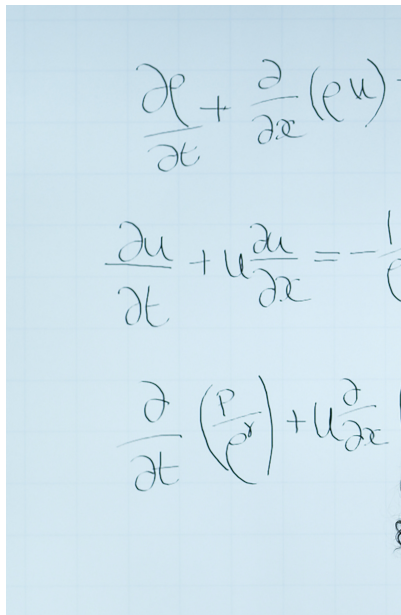 ∂ρ/∂t + ∂/∂x (ρu)
∂u/∂t + u ∂u/∂x = - 1/ρ
∂/∂t (P/ρ^γ) + u ∂/∂x (